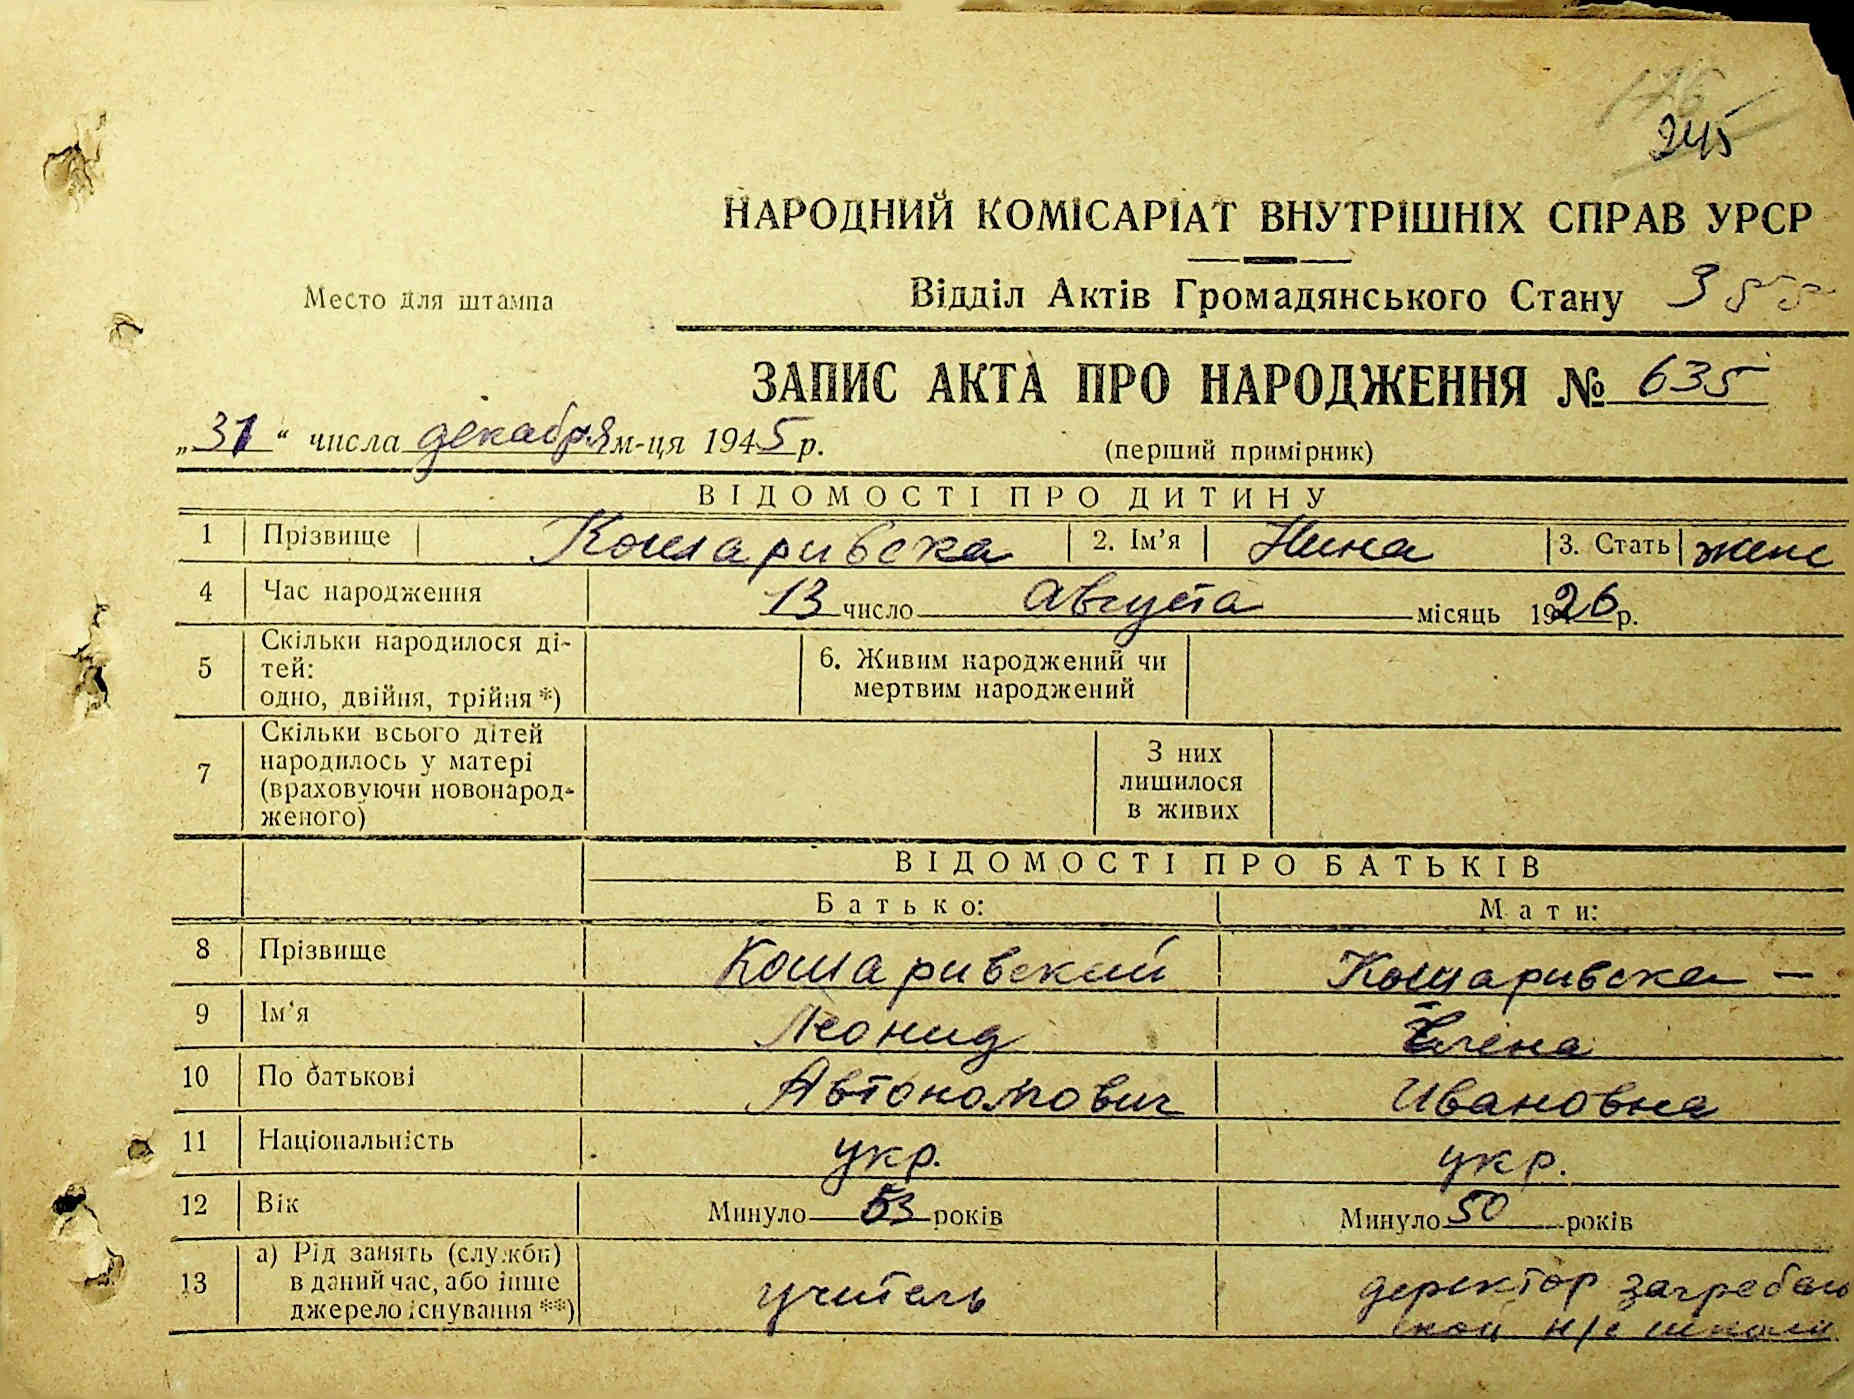 245
НАРОДНИЙ КОМІСАРІАТ ВНУТРІШНІХ СПРАВ УРСР
Место для штампа
Відділ Актів Громадянського Стану 355
ЗАПИС АКТА ПРО НАРОДЖЕННЯ № 635
„31“ числа декабря м-ця 1945 р. (перший примірник)
ВІДОМОСТІ ПРО ДИТИНУ
1 Прізвище Кошаривска 2. Ім’я Нина 3. Стать женс
4 Час народження 13 число августа місяць 1926 р.
5 Скільки народилося ді-
тей:
одно, двійня, трійня *)
6. Живим народжений чи
мертвим народжений
7 Скільки всього дітей
народилось у матері
(враховуючи новонарод-
женого)
З них
лишилося
в живих
ВІДОМОСТІ ПРО БАТЬКІВ
Батько: Мати:
8 Прізвище Кошаривский Кошаривска –
9 Ім’я Леонид Елена
10 По батькові Автономович Ивановна
11 Національність укр. укр.
12 Вік Минуло 53 років Минуло 50 років
13 а) Рід занять (служби)
в даний час, або інше
джерело існування **)
учитель
директор загребель
ской н/с школи